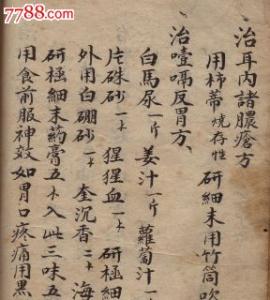 7788.com
治耳内諸膿瘡方
用柿蒂燒存性 研細末用竹筒吹
治噎嗝反胃方、
白馬尿一斤 姜汁一斤 蘿蔔汁一
片硃砂一 猩猩血一 研極細
外用白硼砂一 奎沉香二 海
研極細末藥膏五 入此三味五
用食前服神效如胃口疼痛用黑